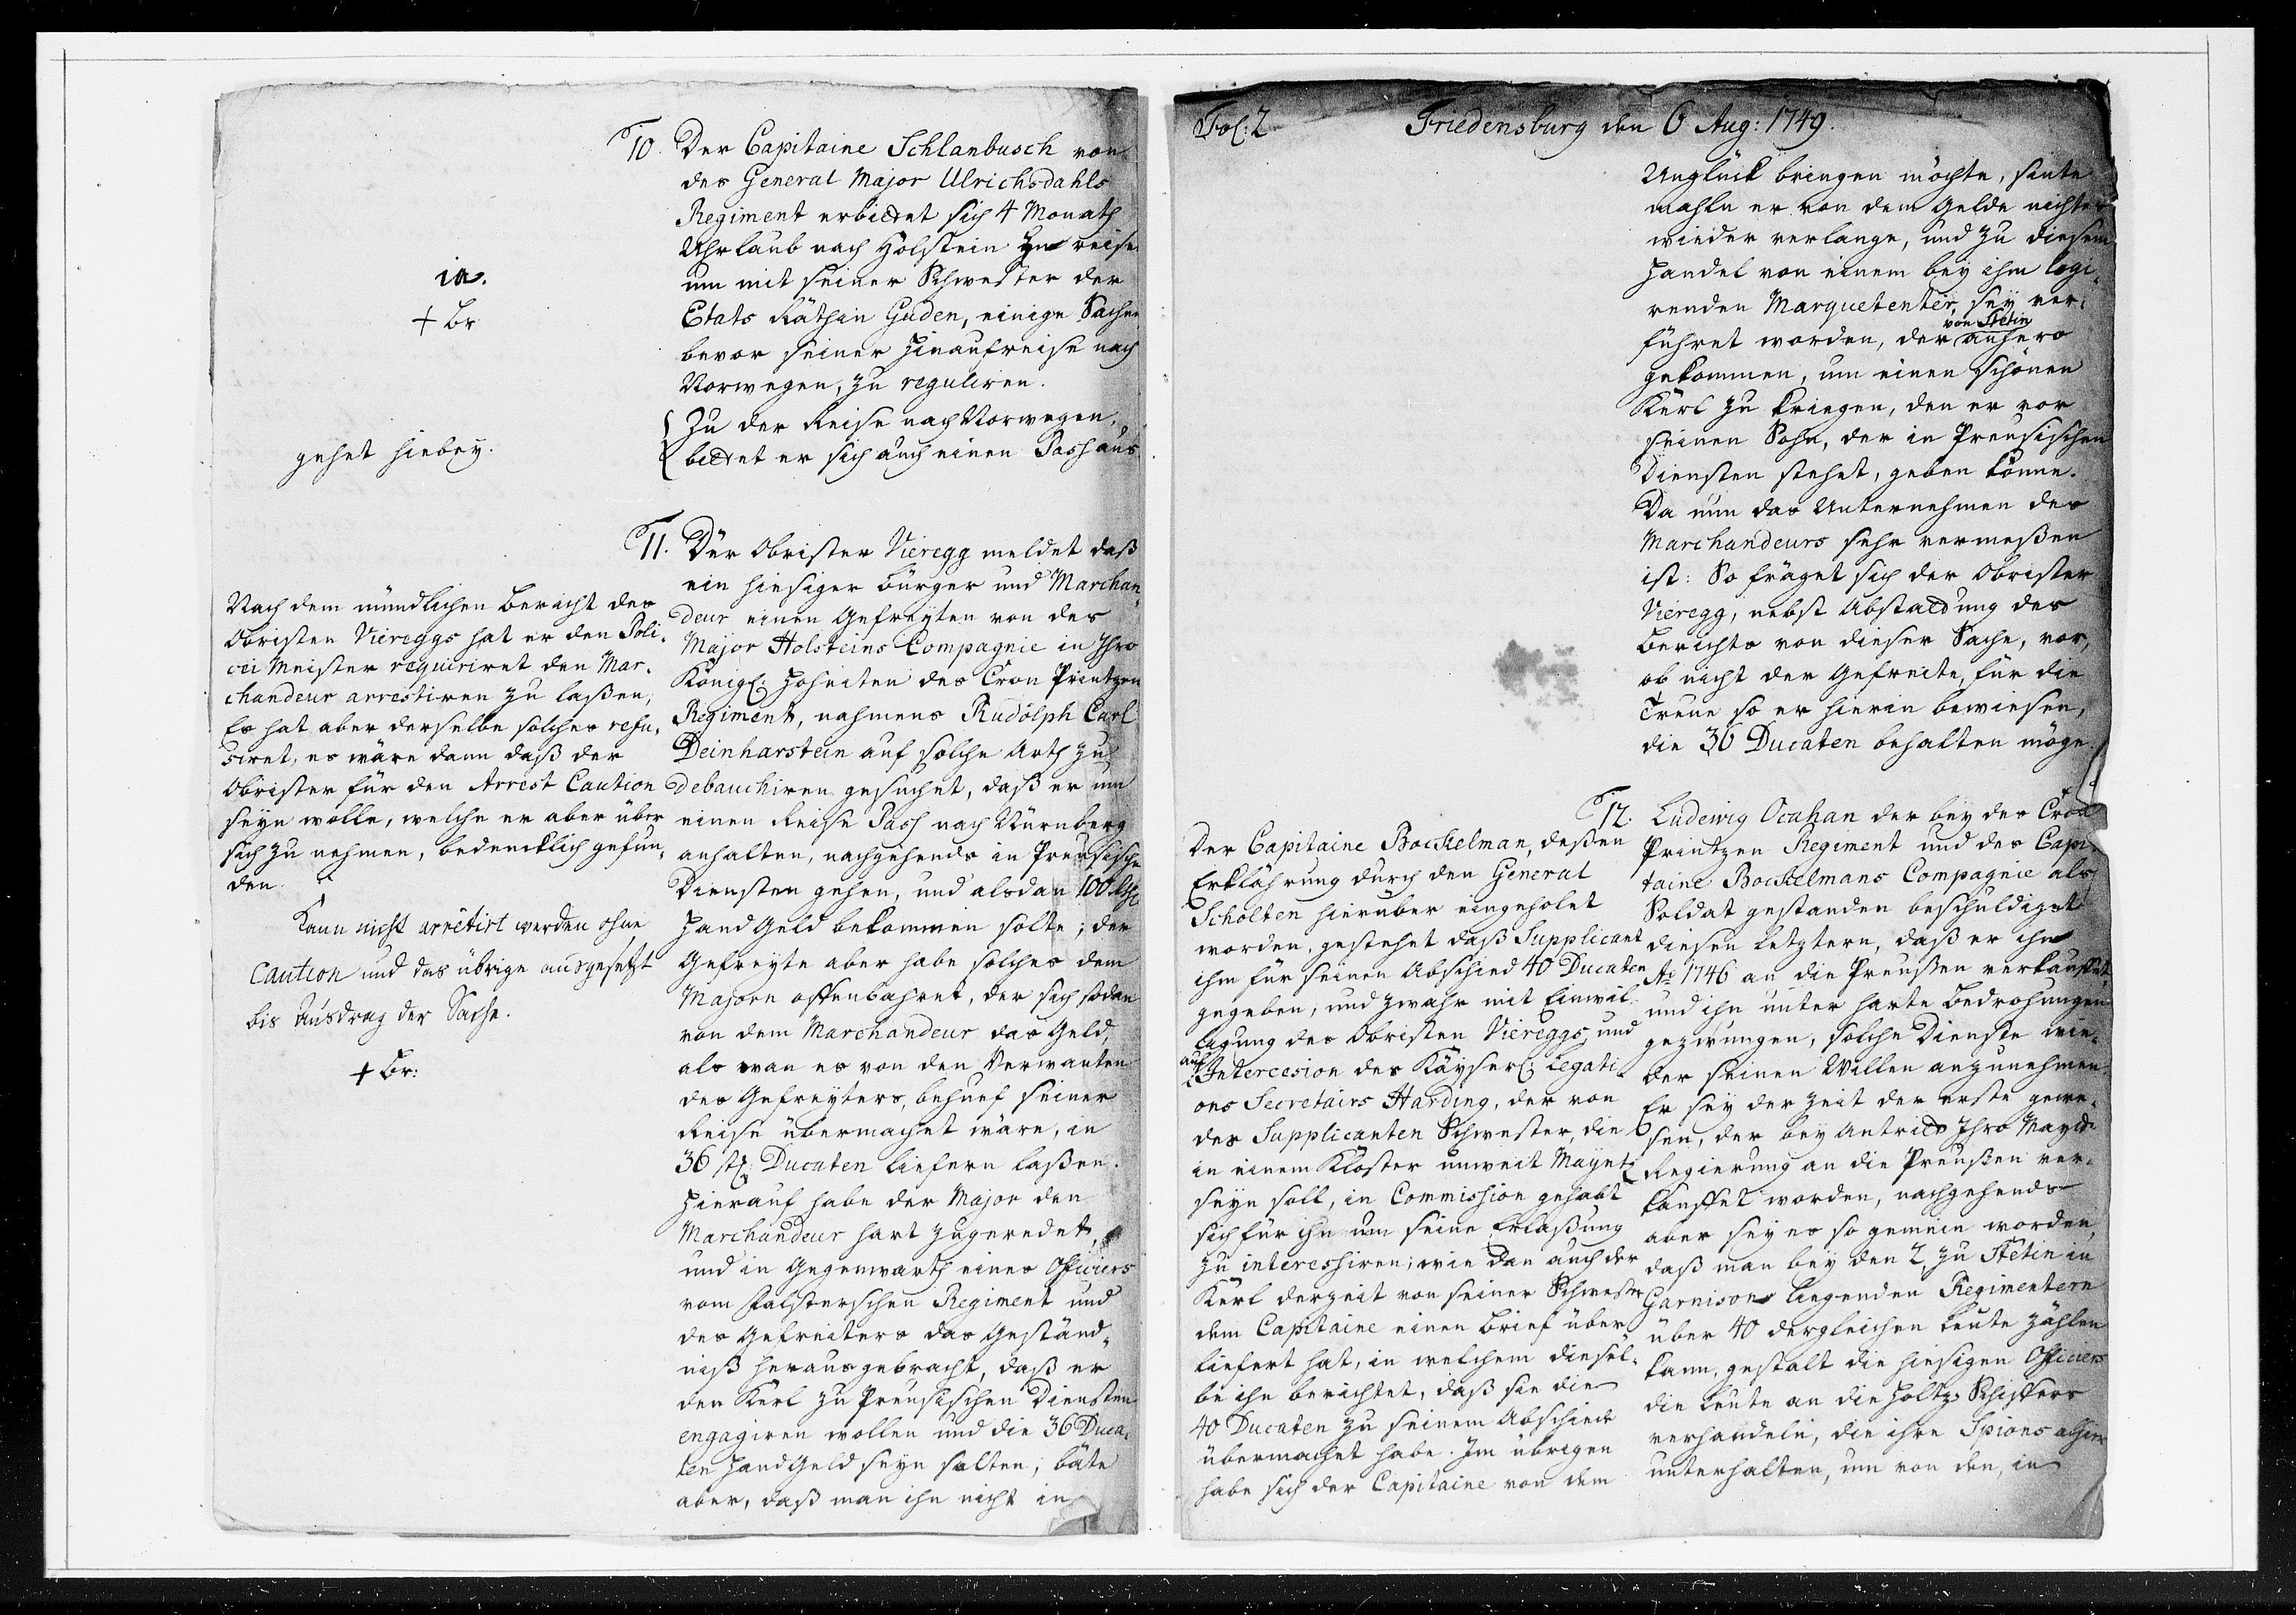 10. Der Capitaine Schlanbusch von
des General Major Ulrichsdahls
Regiment erbittet sich 4 Monath
Uhrlaub nach Holstein zu reisen
um mit seiner Schwester der
Etats Räthin Guden, einige Sachen
bevor seiner Hinaufreise nach
Norwegen, zu reguliren.
Zu der Reise nach Norwegen,
bittet er sich auch einen Pass aus
ia.
+ Br
gehet hiebey.
11. Der Obrister Vieregg meldet daß
ein hiesiger bürger und Marchan-
deur einen Gefreyten von des
Major Holsteins Compagnie in Ihro
Königl: Hoheiten des Cron Printzen
Regiment, nahmens Rudolph Carl
Deinharstein auf solche Arth zu
debauchiren gesuchet, daß er um
einen Reise Pass nach Nürnberg
anhalten, nachgehends in Preusische
Diensten gehen, und alsdan 100
Hand Geld bekommen solte; der
Gefreyte aber habe solches dem
Majorn offenbahret, der sich sodan
von dem Marchandeur das Geld,
als wan es von den Verwanten
des Gefreyters, behuef seiner
Reise übermachet wäre, in
36 st: Ducaten liefern laßen.
Hierauf habe der Major den
Marchandeur hart zugeredet,
und in Gegenwarth eines Officiers
vom Falsterschen Regiment und
des Gefreiters das Geständ-
niß heraus gebracht, daß er
den Kerl zu Preusischen Diensten
engagiren wollen und die 36 Duca-
ten Hand Geld seyn solten; bäte
aber, daß man ihn nicht in
Nach dem mündlichen Bericht des
Obristen Viereggs hat er den Poli-
cei Meister requiriret den Mar-
chandeur arrestiren zu laßen,
Es hat aber derselbe solches refu-
siret, es wäre dann daß der
Obrister für den Arrest Caution
seyn wolle, welche er aber über
sich zu nehmen, bedencklich gefun-
den.
Kann nicht arretirt werden ohne
Caution und das übrige ausgesetzt
bis Ausdrag der Sache.
+ Br:
Fol: 2 Friedensburg den 6 Aug: 1749.
Unglück bringen möchte, sinte
mahln er von dem Gelde nichtes
wieder verlange, und zu diesem
Handel von einem bey ihm logi-
renden Marquetenter, sey ver-
führet worden, der von Stetin anhero
gekommen, um einen schönen
Kerl zu kriegen, den er vor
seinen Sohn, der in Preusischen
Diensten stehet, geben könne.
Da nun das Unternehmen des
Marchandeurs sehr vermeßen
ist: So fräget sich der Obrister
Vieregg, nebst Abstattung des
Berichts von dieser Sache, vor,
ob nicht der Gefreite, für die
Treue so er hierin bewiesen,
die 36 Ducaten behalten möge.
12. Ludewig Ocahan der bey des Cron
Printzen Regiment und des Capi-
taine Bockelmans Compagnie als
Soldat gestanden beschuldiget
diesen letztern, daß er ihn
Ao 1746 an die Preußen verkauffet,
und ihn unter harte Bedrohungen
gezwungen, solche Dienste wie-
der seinen Willen anzunehmen.
Er sey der Zeit der erste gewe-
sen, der bey Antritt Ihro Maytt:
Regierung an die Preußen ver-
kauffet worden, nachgehends
aber sey es so gemein worden,
daß man bey den 2 zu Stetin in
Garnison liegenden Regimentern
über 40 dergleichen Leute zählen
kann, gestalt die hiesigen Officiers
die Leute an die Holtz Schiffers
verhandeln, die ihre Spions alhier
unterhalten, um von den, in
Der Capitaine Bockelman, deßen
Erklährung durch den General
Scholten hierüber eingeholet
worden, gestehet daß Supplicant
ihm für seinen Abschied 40 Ducaten
gegeben, und zwahr mit Einwil-
ligung des Obristen Viereggs, und
auf Intercesion des Käyserl: Legati-
ons Secretairs Harding, der von
des Supplicanten Schwester, die
in einem Kloster unweit Mayntz
seyn soll, in Commission gehabt
sich für ihn um seine Erlaßung
zu interessiren; wie dan auch der
Kerl derzeit von seiner Schwester
dem Capitaine einen Brief über-
liefert hat, in welchem diesel-
be ihn berichtet, daß sie die
40 Ducaten zu seinem Abschiede
übermachet habe. Im übrigen
habe sich der Capitaine von dem